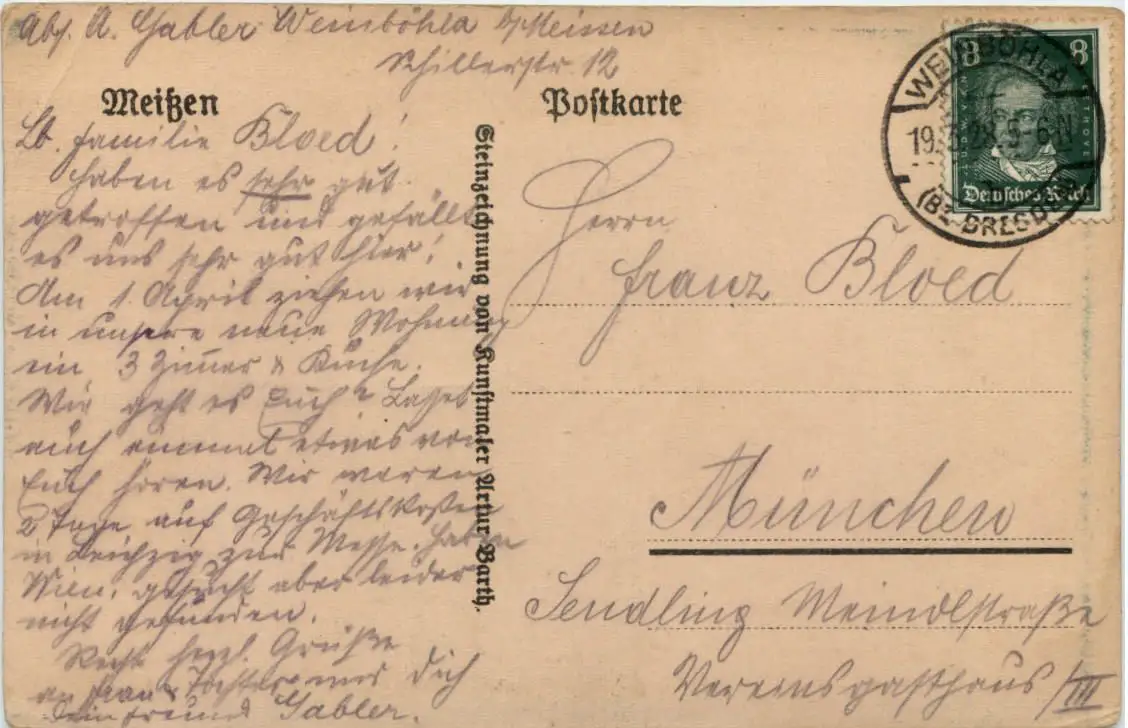 Abs. A. Gabler Weinböhla b/Meissen
Schillerstr. 12
Meißen
Lb. Familie Bloed!
haben es sehr gut
getroffen und gefällt
es uns sehr gut hier!
Am 1 April ziehen wir
in unsere neue Wohnung
ein 3 Zimmer & Küche.
Wie geht es Euch? Laßt
auch einmal etwas von
Euch hören. Wir waren
2 Tage auf Geschäftskosten
in Leipzig zur Messe. Haben
Wien. gesucht aber leider
nicht gefunden.
Recht herzl. Grüße
an Frau & Tochter und Dich
Dein Freund Gabler.
Steinzeichnung von Kunstmaler Artur Barth.
Postkarte
8 8
LUDWIG BEETHOVEN
Deutsches Reich
WEINBÖHLA
28.5-6N
(Bz. DRESDEN)
Herrn
Franz Bloed
München
Sendling Meindlstraße
Vereinsgasthaus/III